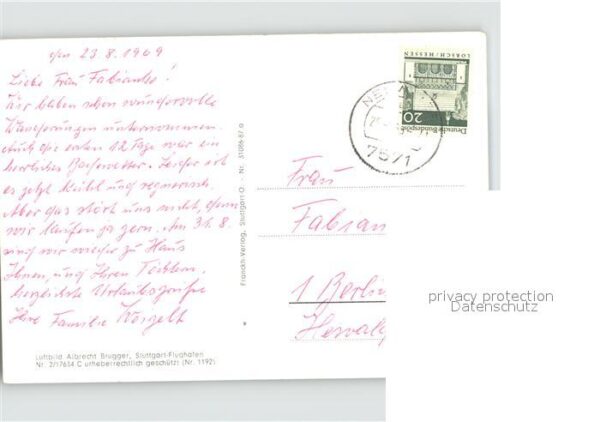 den 23.8.1969
Liebe Frau Fabianke!
Wir haben schon wundervolle
Wanderungen unternommen.
Auch die ersten 12 Tage war ein
herrliches Badewetter. Leider ist
es jetzt kühl und regnerisch.
Aber das stört uns nicht, denn
wir laufen ja gern. Am 31.8.
sind wir wieder zu Haus
Ihnen, und Ihren Töchtern,
herzlichste Urlaubsgrüße
Ihre Familie
Luftbild Albrecht Brugger, Stuttgart-Flughafen
Nr. 2/17634 C urheberrechtlich geschützt (Nr. 1192)
Franckh-Verlag, Stuttgart-O · Nr. 51086-87 a
LORSCH/HESSEN
20
Deutsche Bundespost
7571
Frau
Fabian
1 Berlin
privacy protection
Datenschutz